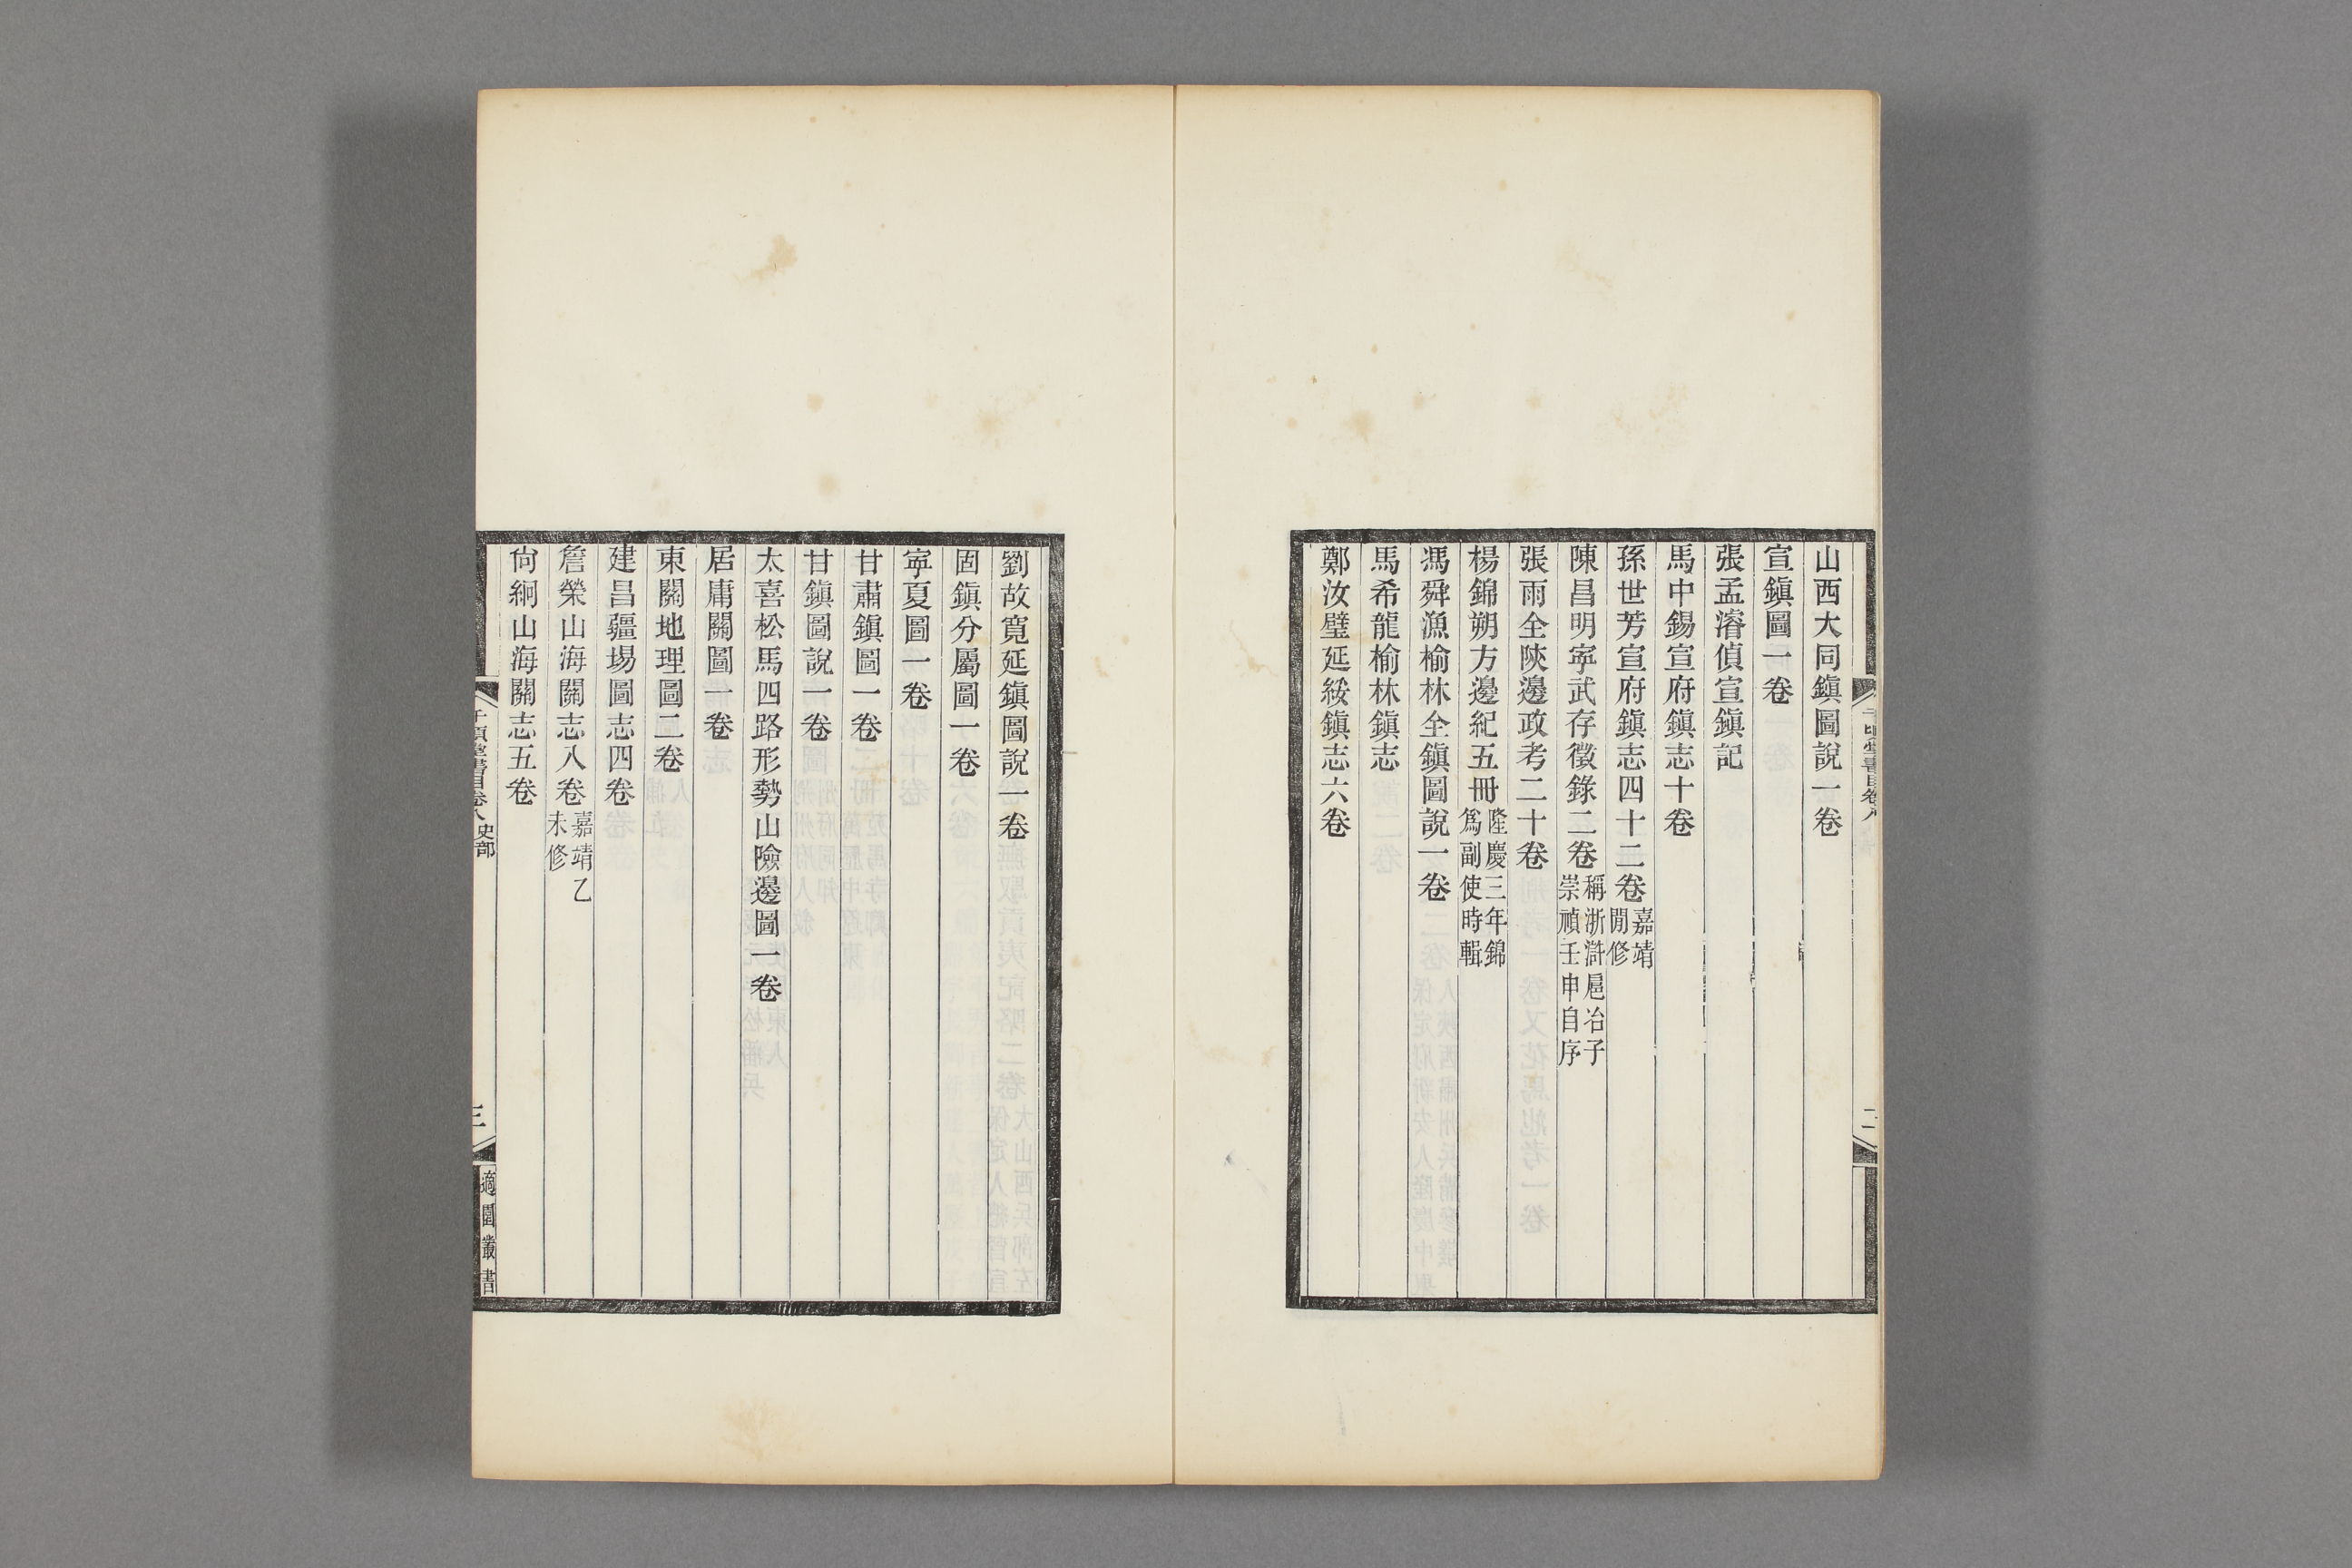 山西大同鎭圖說一卷
宣鎭圖一卷
張孟濬偵宣鎭記
馬中錫宣府鎭志十卷
孫世芳宣府鎭志四十二卷嘉靖閒修
陳昌明寧武存徵錄二卷稱浙滸扈冶子崇禎壬申自序
張雨全陜邊政考二十卷
楊錦朔方邊紀五冊隆慶三年錦爲副使時輯
馮舜漁榆林全鎭圖說一卷
馬希龍榆林鎭志
鄭汝璧延綏鎭志六卷
劉故寬延鎭圖說一卷
固鎭分屬圖一卷
寧夏圖一卷
甘肅鎭圖一卷
甘鎭圖說一卷
太喜松馬四路形勢山險邊圖一卷
居庸關圖一卷
東關地理圖二卷
建昌疆埸圖志四卷
詹榮山海關志八卷嘉靖乙未修
尙絅山海關志五卷
千頃堂書目卷八 史部
三
適園叢書